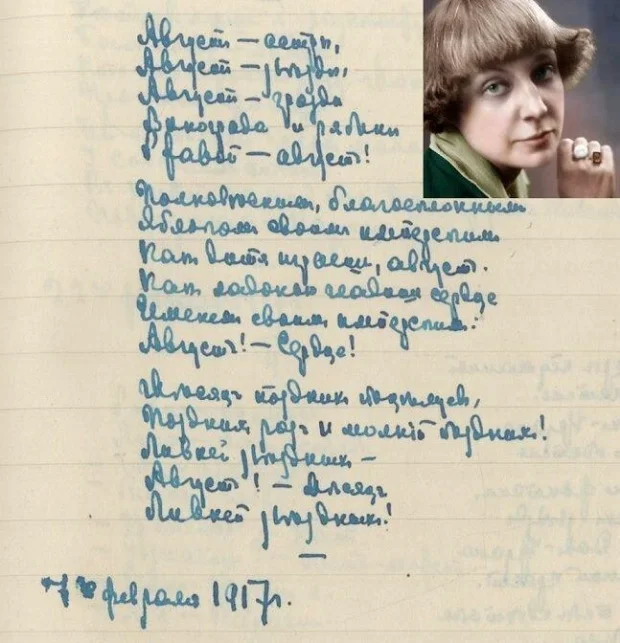 Августъ — астры,
Августъ — звѣзды,
Августъ — грозди
Винограда и рябины
Ржавой — августъ!
Полновѣснымъ, благосклоннымъ
Яблокомъ своимъ имперскимъ
Какъ дитя играешь, августъ.
Какъ ладонью гладишь сердце
Именемъ своимъ имперскимъ:
Августъ! — Сердце!
Мѣсяцъ позднихъ поцѣлуевъ,
Позднихъ розъ и молній позднихъ!
Ливней звѣздныхъ —
Августъ! — Мѣсяцъ
Ливней звѣздныхъ!
7го февраля 1917г.